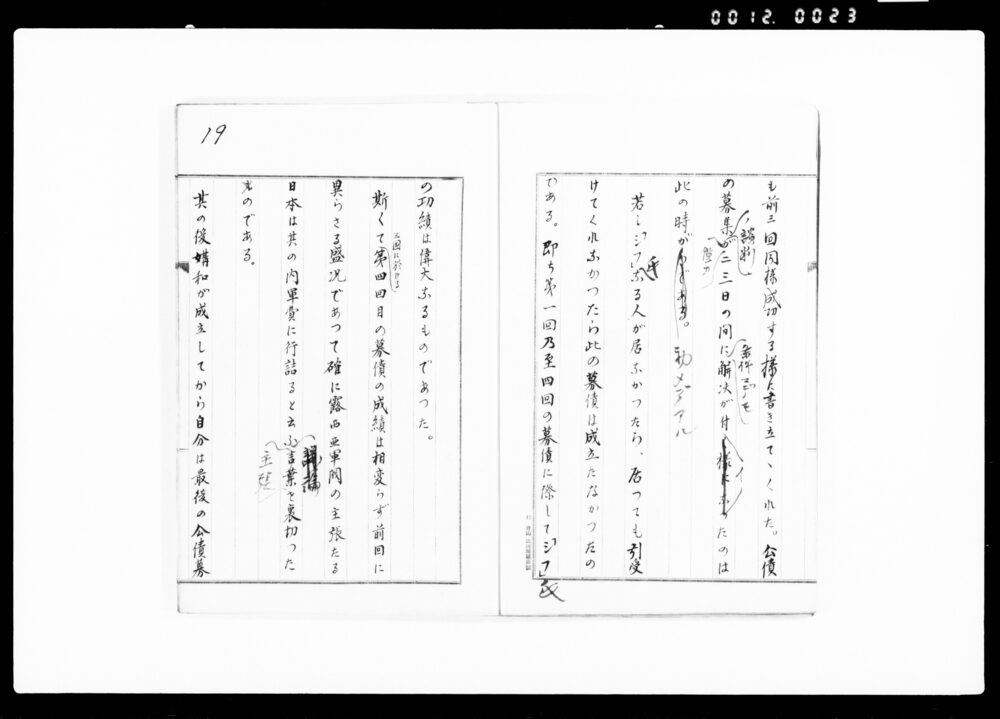 0012. 0023
も前三回同様成功する様に書き立てゝくれた。公債
の募集が二三日の間に解決が付 たのは
談判
条件
此の時が 初メデアル
若しシフ氏なる人が居なかつたら、居つても引受
けてくれなかつたら此の募債は成立たなかつたの
である。即ち第一回乃至四回の募債に際してシフ氏
19
の功績は偉大なるものであつた。
斯くて第四回目の募債の成績は相変らず前回に
三国に於ける
異らざる盛況であつて確に露西亜軍閥の主張たる
日本は其の内軍費に行詰ると云ふ言葉を裏切つた
ものである。
其の後媾和が成立してから自分は最後の公債募